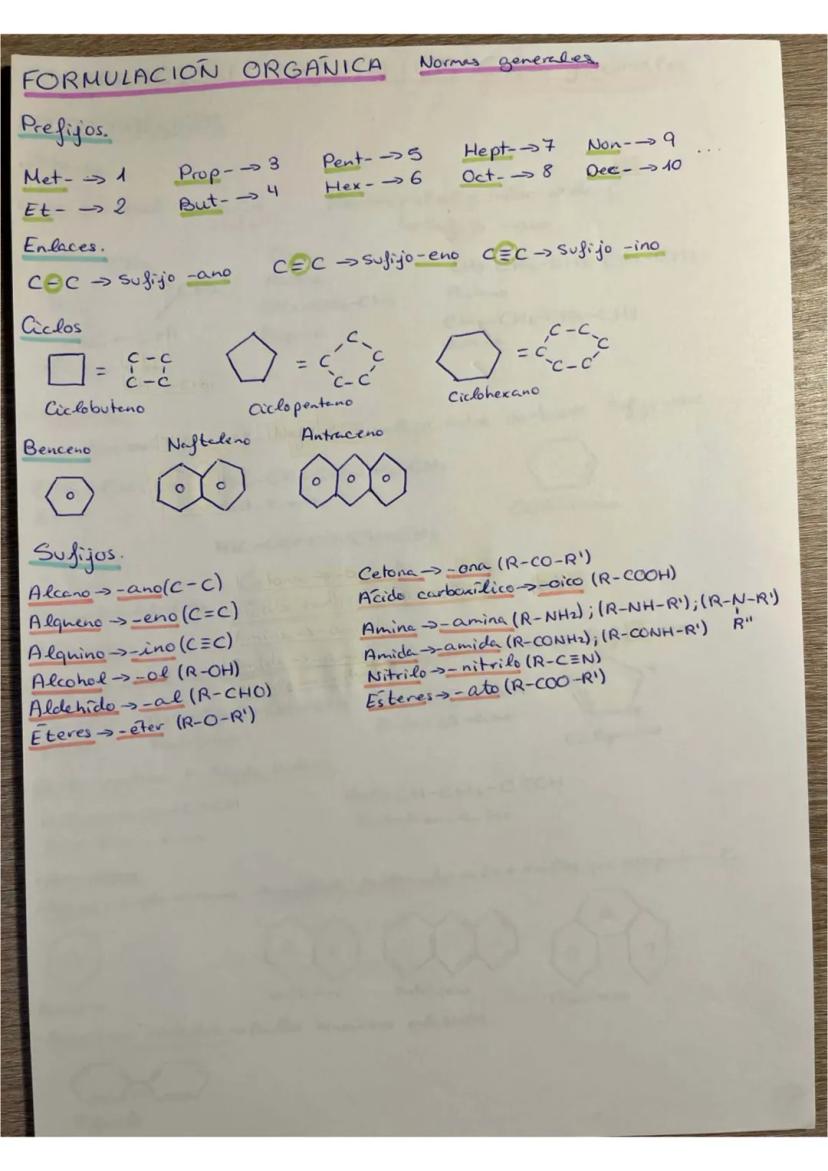 FORMULACIÓN ORGÁNICA Normas generales.
Prefijos.
Met- → 1 Prop- → 3 Pent- → 5 Hept- → 7 Non- → 9 ...
Et- → 2 But- → 4 Hex- → 6 Oct- → 8 Dec- → 10
Enlaces.
C-C → Sufijo -ano C=C → Sufijo -eno C≡C → Sufijo -ino
Ciclos
= C-C C-C
= C C C C-C
= C-C C C C-C
Ciclobutano Ciclopentano Ciclohexano
Benceno Naftaleno Antraceno
Sufijos.
Alcano → -ano (C-C)
Alqueno → -eno (C=C)
Alquino → -ino (C≡C)
Alcohol → -ol (R-OH)
Aldehído → -al (R-CHO)
Éteres → -éter (R-O-R')
Cetona → -ona (R-CO-R')
Ácido carboxílico → -oico (R-COOH)
Amina → -amina (R-NH2); (R-NH-R'); (R-N-R')
R''
Amida → -amida (R-CONH2); (R-CONH-R')
Nitrilo → -nitrilo (R-C≡N)
Ésteres → -ato (R-COO-R')